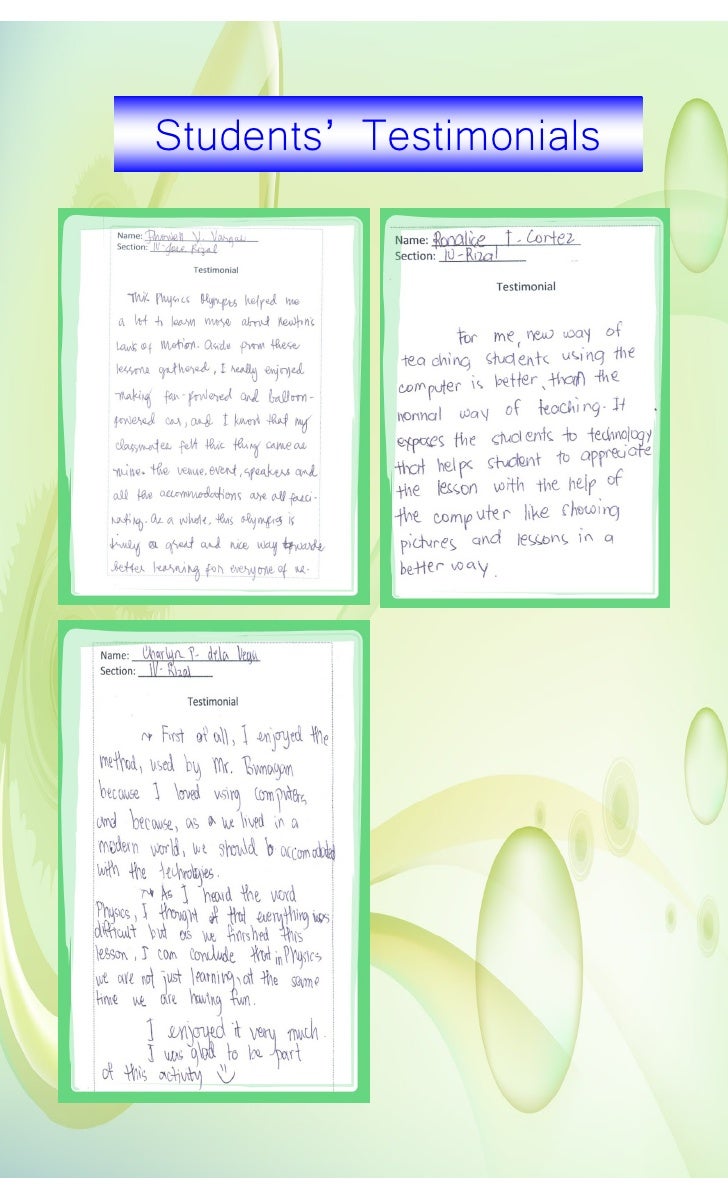 Students' Testimonials
Name: V. Vargas
Section: IV-Jose Rizal
Testimonial
This Physics Olympics helped me
a lot to learn more about newton's
Laws of Motion. Aside from these
lessons gathered, I really enjoyed
making fan-powered and balloon-
powered car, and I know that my
classmates felt this thing same as
mine. the venue, event, speakers and
all the accommodations are all fasci-
nating. As a whole, this olympics is
truly a great and nice way towards
better learning for everyone of us.
Name: Ronalice T. Cortez
Section: IV-Rizal
Testimonial
For me, new way of
teaching students using the
computer is better, than the
normal way of teaching. It
exposes the students to technology
that helps student to appreciate
the lesson with the help of
the computer like showing
pictures and lessons in a
better way.
Name: Charlyn P. dela Vega
Section: IV-Rizal
Testimonial
First of all, I enjoyed the
method, used by Mr. Binnagan
because I loved using computers
and because, as we lived in a
modern world, we should b accomodated
with the technologies.
As I heard the word
Physics, I thought that everything was
difficult but as we finished this
lesson, I can conclude that in Physics
we are not just learning, at the same
time we are having fun.
I enjoyed it very much.
I was glad to be part
of this activity